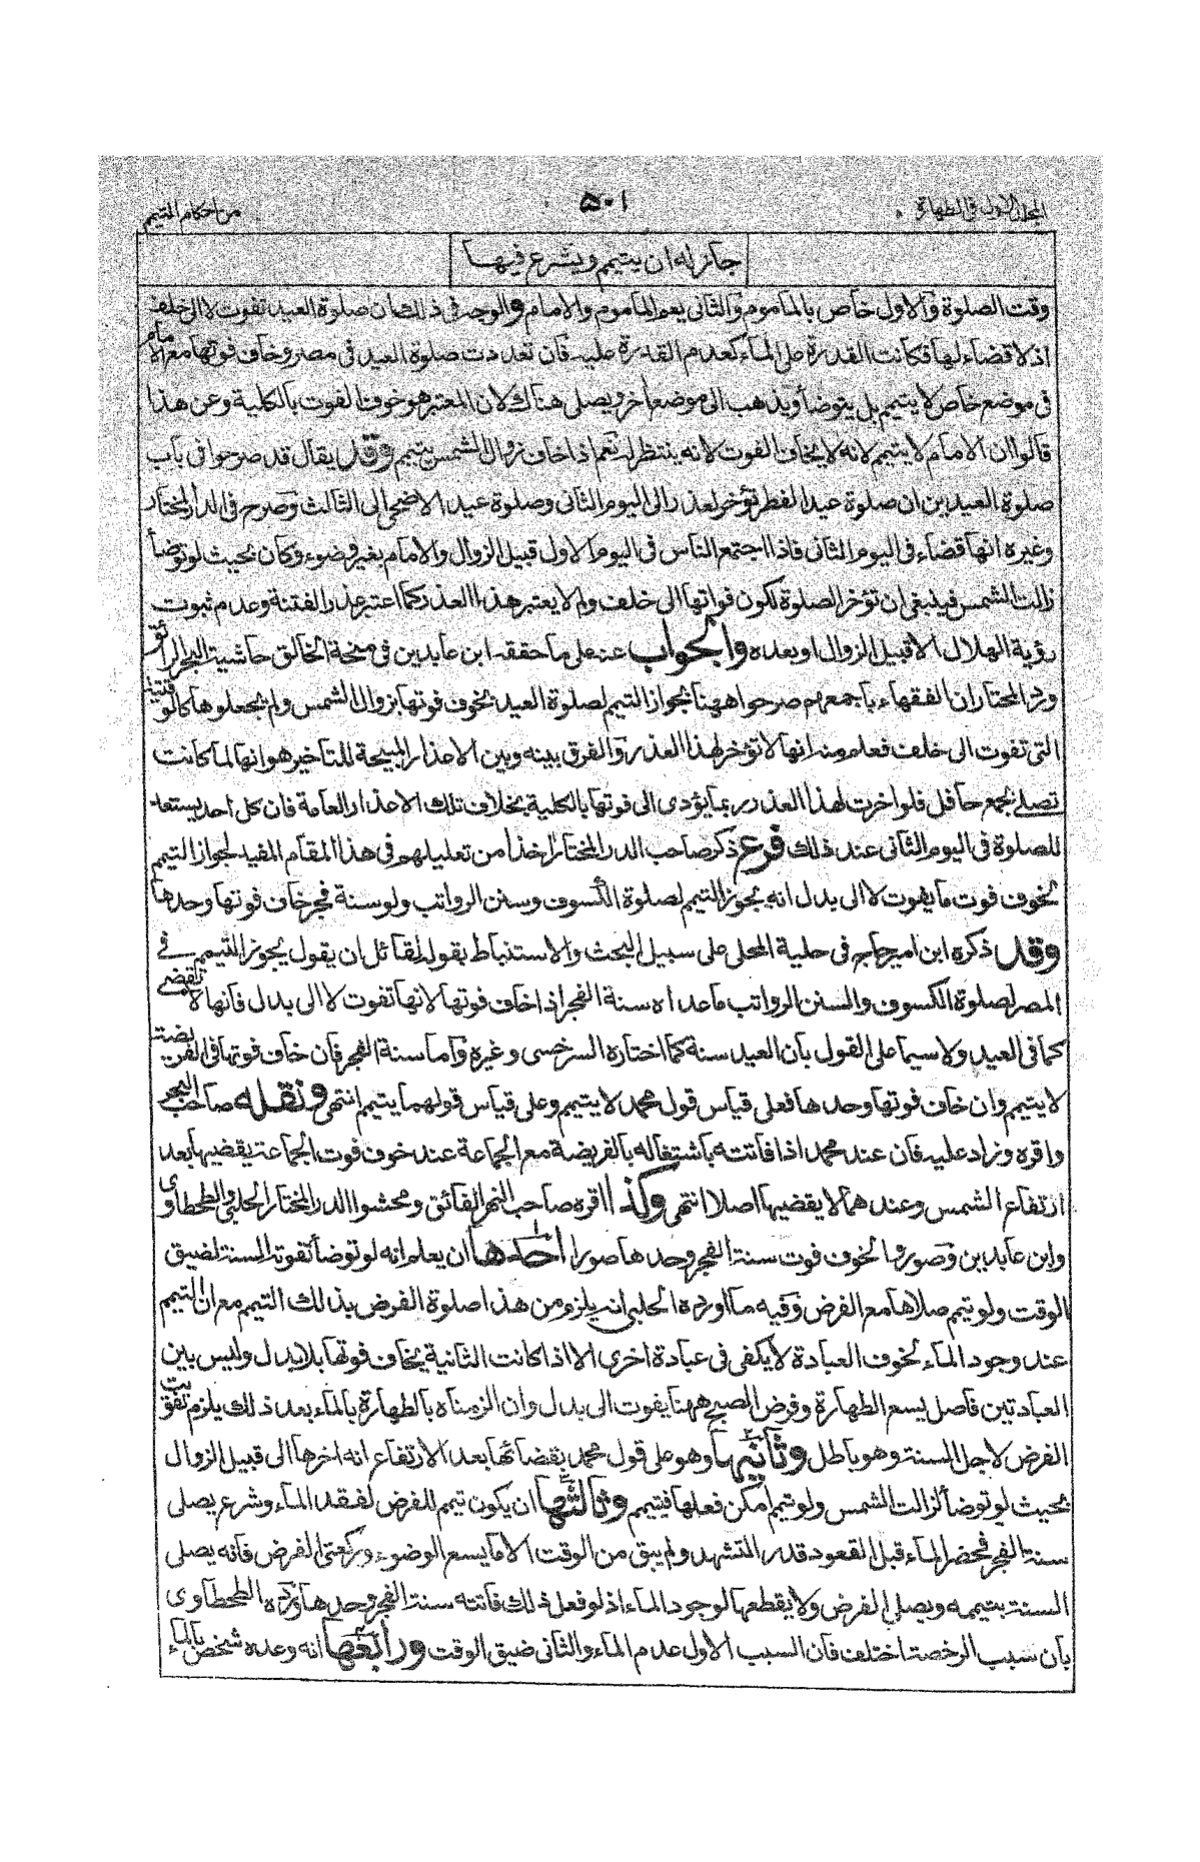 المجلد الاول في الطهارة
٥٠١
من احكام التيمم
جاز له ان يتيمم ويشرع فيها
وقت الصلوة والاول خاص بالماموم والثانى يعم الماموم والامام والوجه فى ذلك ان صلوة العيد تفوت لا الى خلف
اذ لا قضاء لها فكانت القدرة على الماء كعدم القدرة عليه فان تعددت صلوة العيد فى مصر وخاف فوتها مع الامام
فى موضع خاص لا يتيمم بل يتوضأ ويذهب الى موضع اخر ويصلى هناك لان المعتبر هو خوف الفوت بالكلية وعن هذا
قالوا ان الامام لا يتيمم لانه لا يخاف الفوت لانه ينتظر له نعم اذا خاف زوال الشمس يتيمم وقد يقال قد صرحوا فى باب
صلوة العيدين ان صلوة عيد الفطر تؤخر لعذر الى اليوم الثانى وصلوة عيد الاضحى الى الثالث وصرح فى الدر المختار
وغيره انها قضاء فى اليوم الثانى فاذا اجتمع الناس فى اليوم الاول قبيل الزوال والامام بغير وضوء وكان بحيث لو توضأ
زالت الشمس فينبغى ان تؤخر الصلوة لكون فواتها الى خلف ولم لا يعتبر هذا العذر كما اعتبر عذر الفتنة وعدم ثبوت
رؤية الهلال الا قبيل الزوال او بعده والجواب عنه على ما حققه ابن عابدين فى منحة الخالق حاشية البحر الرائق
ورد المحتار ان الفقهاء باجمعهم صرحوا ههنا بجواز التيمم لصلوة العيد بخوف فوتها بزوال الشمس ولم يجعلوها كالوقتية
التى تفوت الى خلف فعلم منه انها لا تؤخر لهذا العذر والفرق بينه وبين الاعذار المبيحة للتاخير هو انها لما كانت
تصلى بجمع حافل فلو اخرت لهذا العذر ربما يؤدى الى فوتها بالكلية بخلاف تلك الاعذار العامة فان كل احد يستعد
للصلوة فى اليوم الثانى عند ذلك فرع ذكر صاحب الدر المختار اخذا من تعليلهم فى هذا المقام المفيد لجواز التيمم
لخوف فوت ما يفوت لا الى بدل انه يجوز التيمم لصلوة الكسوف وسنن الرواتب ولو سنة فجر خاف فوتها وحدها
وقد ذكره ابن امير حاج فى حلية المحلى على سبيل البحث والاستنباط بقوله لقائل ان يقول يجوز التيمم فى
المصر لصلوة الكسوف والسنن الرواتب ما عدا سنة الفجر اذا خاف فوتها لانها تفوت لا الى بدل فانها لا تقضى
كما فى العيد ولا سيما على القول بان العيد سنة كما اختاره السرخسى وغيره واما سنة الفجر فان خاف فوتها فى الفريضة
لا يتيمم وان خاف فوتها وحدها فعلى قياس قول محمد لا يتيمم وعلى قياس قولهما يتيمم انتهى ونقله صاحب البحر
واقره وزاد عليه فان عند محمد اذا فاتته باشتغاله بالفريضة مع الجماعة عند خوف فوت الجماعة يقضيها بعد
ارتفاع الشمس وعندهما لا يقضيها اصلا انتهى وكذا اقره صاحب النهر الفائق ومحشوا الدر المختار الحلبى والطحطاوى
وابن عابدين وصوروا لخوف فوت سنة الفجر وحدها صورا احدها ان يعلم انه لو توضأ تفوته السنة لضيق
الوقت ولو تيمم صلاها مع الفرض وفيه ما اورده الحلبى انه يلزم من هذا صلوة الفرض بذلك التيمم مع ان التيمم
عند وجود الماء لخوف العبادة لا يكفى فى عبادة اخرى الا اذا كانت الثانية يخاف فوتها بلا بدل وليس بين
العبادتين فاصل يسع الطهارة وفرض الصبح ههنا يفوت الى بدل وان الزمناه بالطهارة بالماء بعد ذلك يلزم تفويت
الفرض لاجل السنة وهو باطل وثانيها وهو على قول محمد بقضائها بعد الارتفاع انه اخرها الى قبيل الزوال
بحيث لو توضأ لزالت الشمس ولو تيمم امكن فعلها فيتيمم وثالثها ان يكون تيمم للفرض لفقد الماء وشرع يصلى
سنة الفجر فحضر الماء قبل القعود قدر التشهد ولم يبق من الوقت الا ما يسع الوضوء وركعتى الفرض فانه يصلى
السنة بتيممه ويصلى الفرض ولا يقطعها لوجود الماء اذ لو فعل ذلك فاتته سنة الفجر وحدها ورده الطحطاوى
بان سبب الرخصة اختلف فان السبب الاول عدم الماء والثانى ضيق الوقت ورابعها انه وعده شخص بالماء